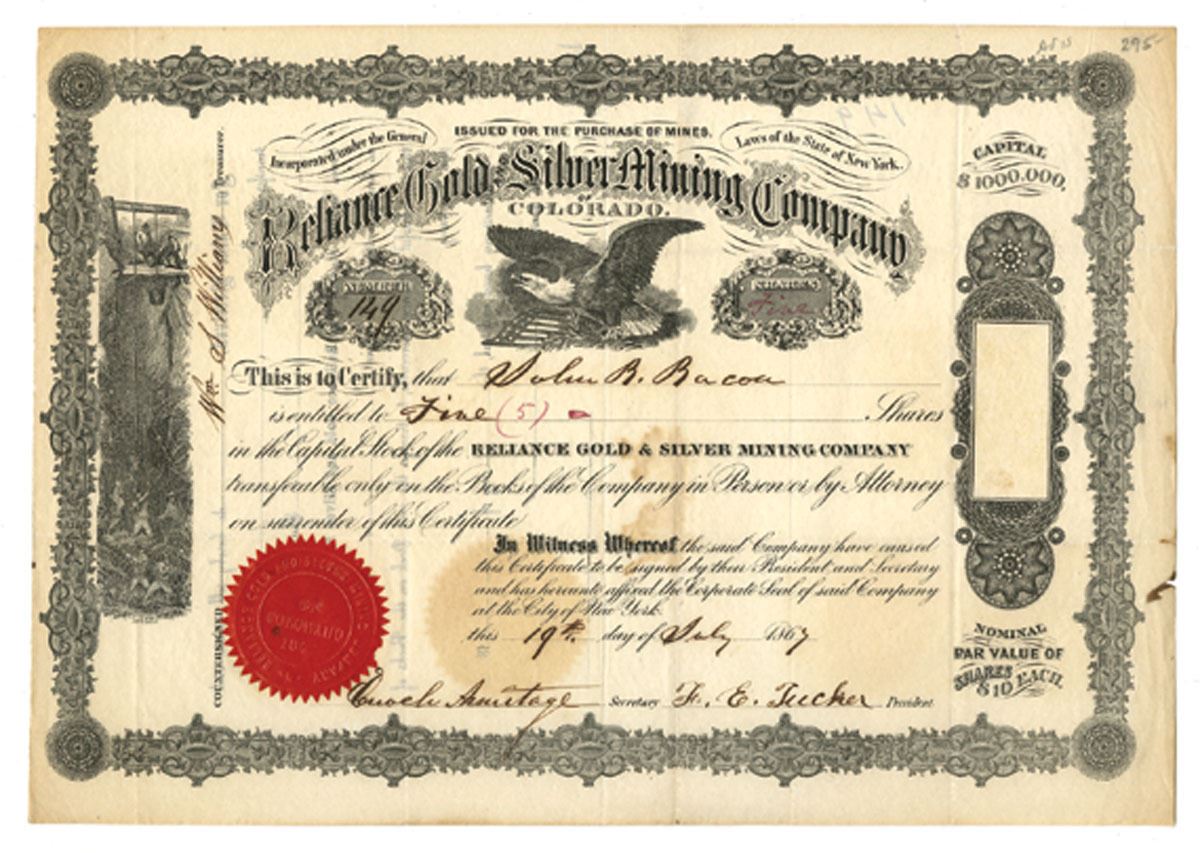 295-
Incorporated under the General
ISSUED FOR THE PURCHASE OF MINES.
Laws of the State of New York.
Reliance Gold and Silver Mining Company
OF
COLORADO.
CAPITAL
$1000.000.
NUMBER
149
SHARES
Five
This is to Certify, that John R. Bacon
is entitled to Five (5) Shares
in the Capital Stock of the RELIANCE GOLD & SILVER MINING COMPANY
transferable only on the Books of the Company in Person or by Attorney
on surrender of this Certificate
In Witness Whereof the said Company have caused
this Certificate to be signed by their President and Secretary
and has hereunto affixed the Corporate Seal of said Company
at the City of New York.
this 19th. day of July 1867
Enoch Armitage Secretary F. E. Tucker President
COUNTERSIGNED
Wm S Williams Treasurer.
RELIANCE GOLD AND SILVER MINING COMPANY
OF
COLORADO
NOMINAL
PAR VALUE OF
SHARES
$10 EACH.